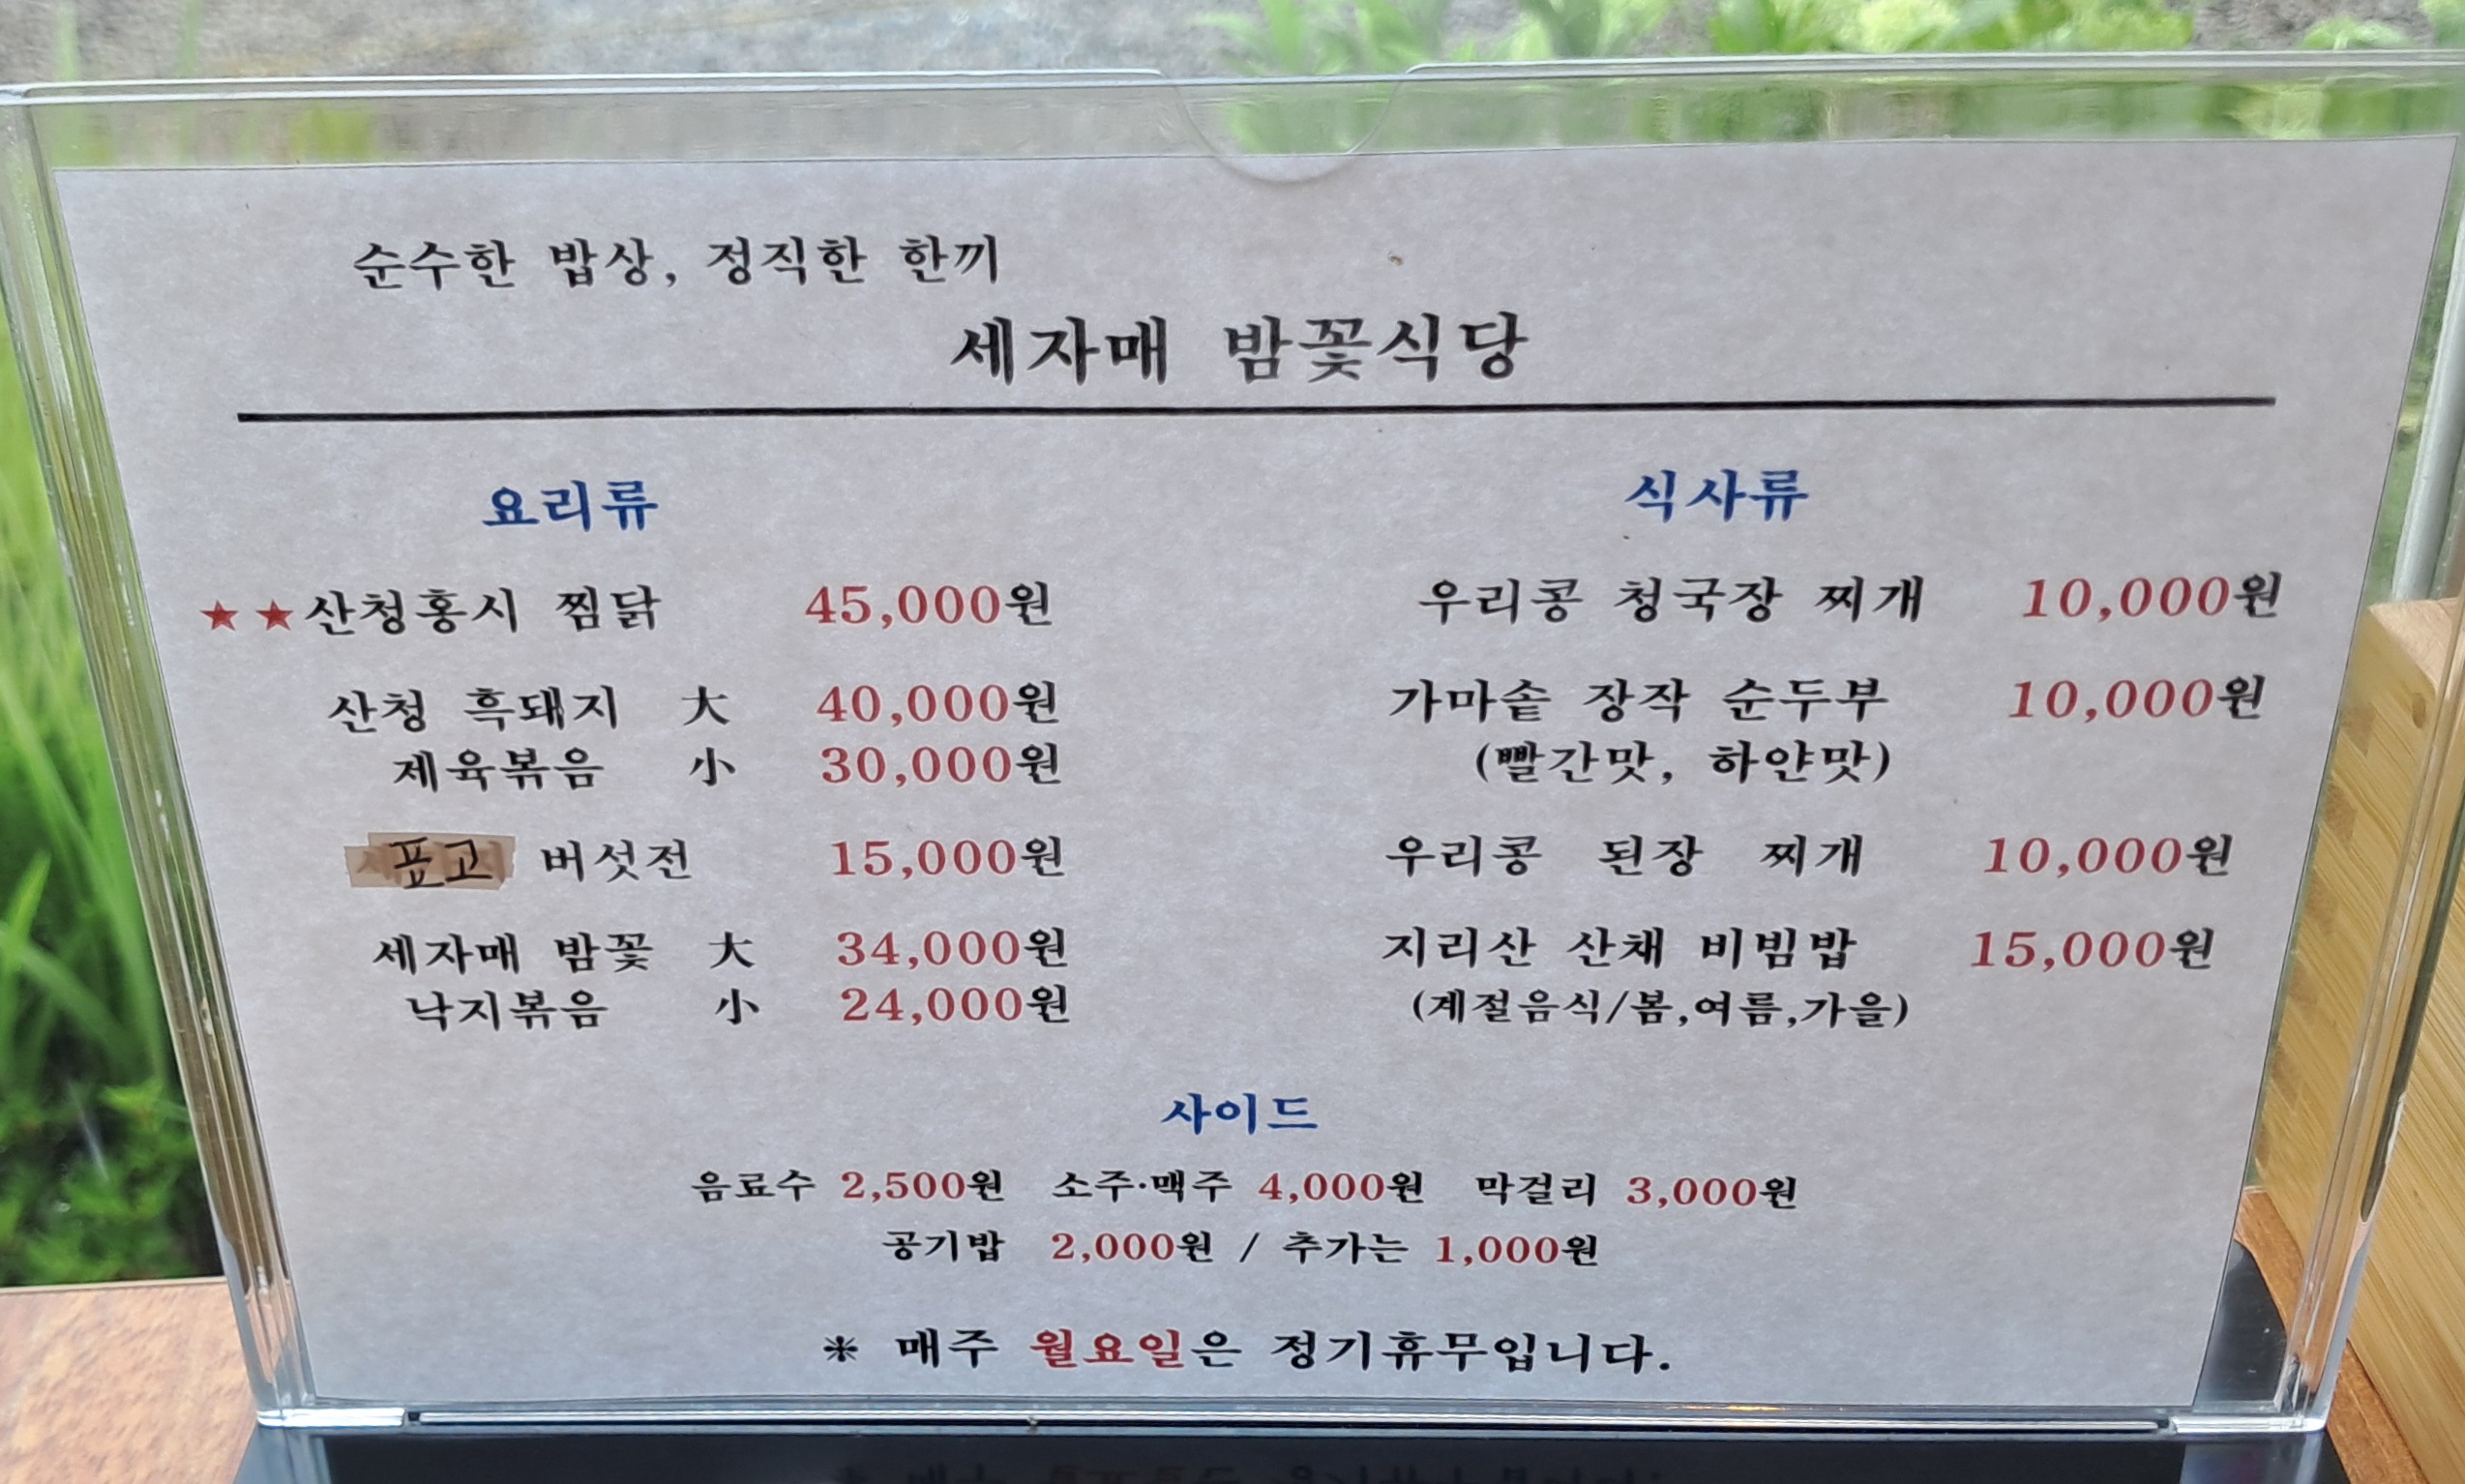 순수한 밥상, 정직한 한끼
세자매 밤꽃식당
요리류
★★산청홍시 찜닭 45,000원
산청 흑돼지 大 40,000원
제육볶음 小 30,000원
표고 버섯전 15,000원
세자매 밤꽃 大 34,000원
낙지볶음 小 24,000원
식사류
우리콩 청국장 찌개 10,000원
가마솥 장작 순두부 10,000원
(빨간맛, 하얀맛)
우리콩 된장 찌개 10,000원
지리산 산채 비빔밥 15,000원
(계절음식/봄,여름,가을)
사이드
음료수 2,500원 소주·맥주 4,000원 막걸리 3,000원
공기밥 2,000원 / 추가는 1,000원
※ 매주 월요일은 정기휴무입니다.